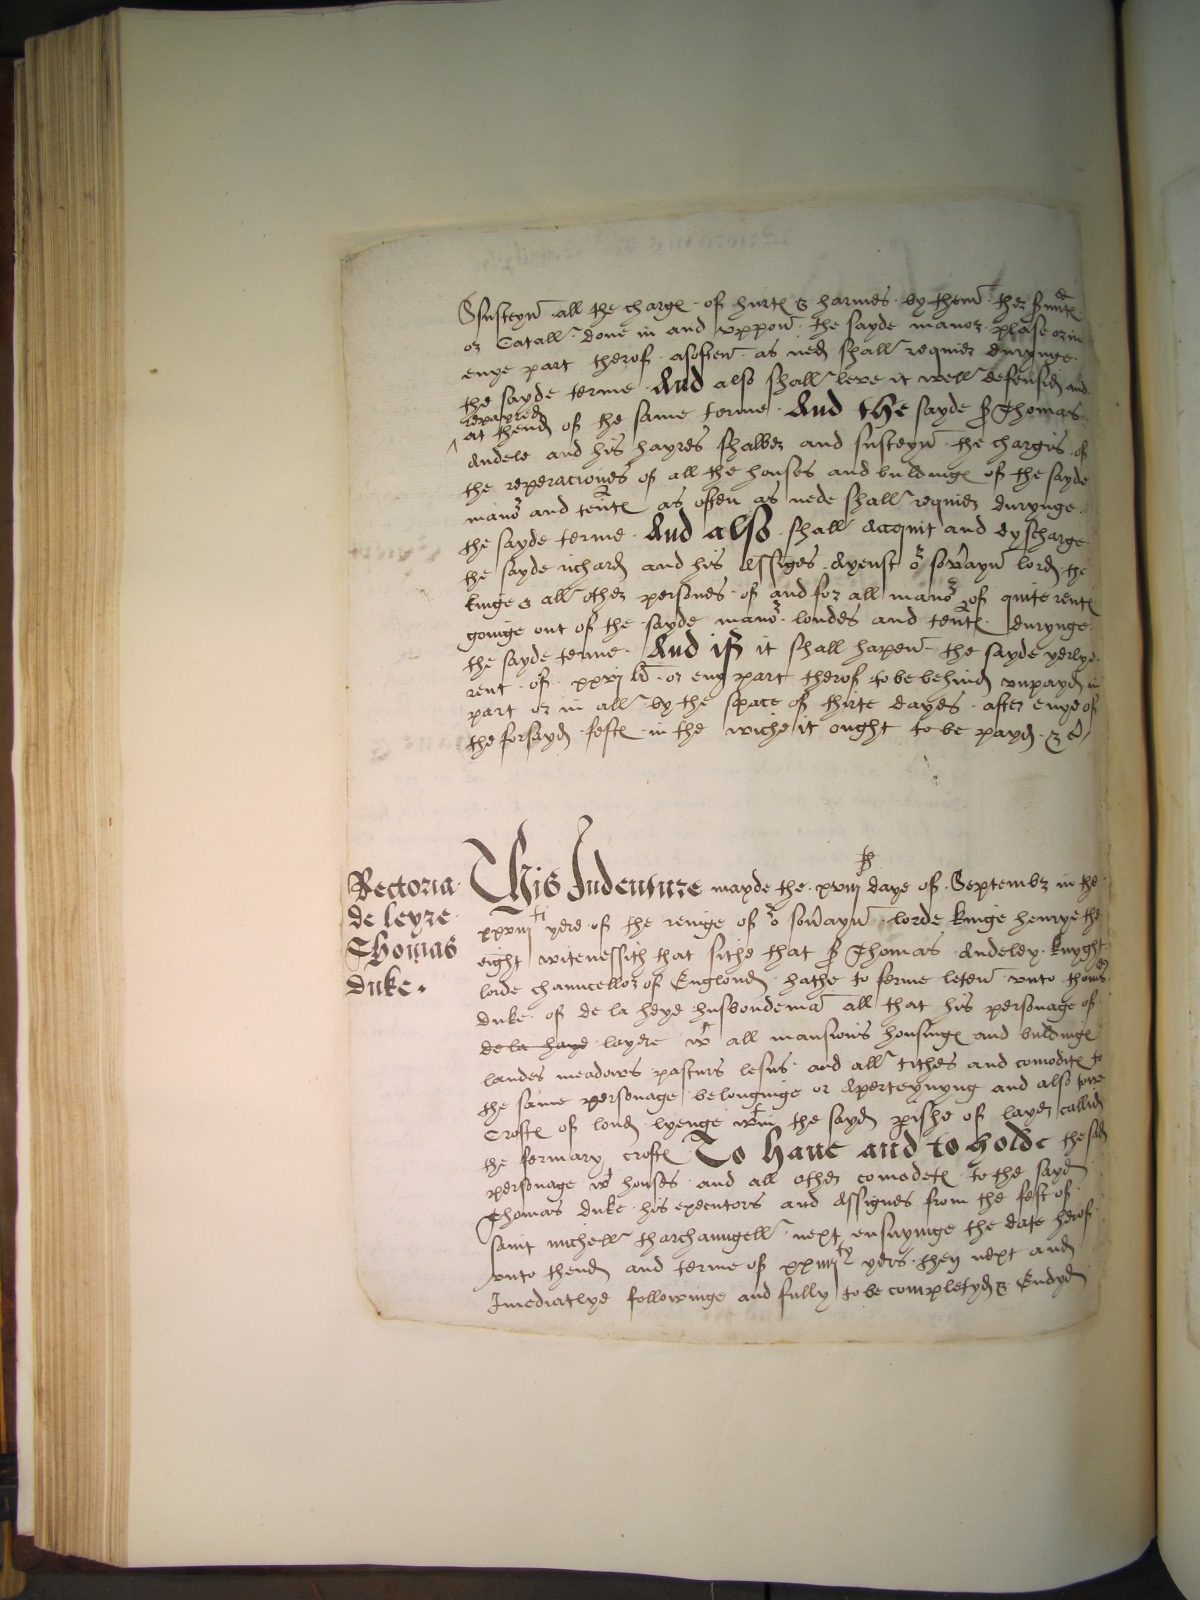 Susteyn all the charge of hurte & harmes by them ther s'unte
or Catall done in and uppon the sayde manor plase or in
enye part therof asoften as nede shall requier durynge
the sayde terme And also shall leve it well defensid and
repayred
at thend of the same terme And the sayde Sr Thomas
Audele and his hayres shalber and susteyn the chargis of
the reperaciones of all the houses and buldinge of the sayde
mano and tente as often as nede shall requier durynge
the sayde terme And also shall Acquit and dyscharge
the sayde richard and his Assiges Ayenst or soverayn lord the
kinge & all other persones of and for all mano of quite rente
goinge out of the sayde mano londes and tente durynge
the sayde terme And if it shall hapen the sayde yerlye
rent of xxvj li or eny part therof to be behind unpayd in
part or in all by the space of thirte dayes after enye of
the forsayd feste in the wiche it ought to be payd & c
Rectoria
de leyre
Thomas
duke
This Indenture mayde the xviij th daye of September in the
xxviij ti yere of the reinge of or soverayn lorde kinge henrye the
eight witenessith that siche that Sr Thomas Audeley knyght
lorde chauncellor of Englond hathe to ferme leten unto thomas
duke of de la heye husbondeman all that his personage of
de la haye layere wt all mansions housinge and buldinge
landes meadows pasturs lesus and all tithes and comodite to
the same personage belonginge or Aperteynyng and also towe
Crofte of lond lyenge wtin the sayd pishe of layer callid
the fermary crofte To have and to holde the said
personage wt houses and all other comodete to the sayd
Thomas duke his executors and Assignes from the fest of
saint michell tharchaungell next ensuyinge the date herof
unto thend and terme of xxiiij ty yers then next and
Imediatlye followinge and fully to be completyd & Endyd